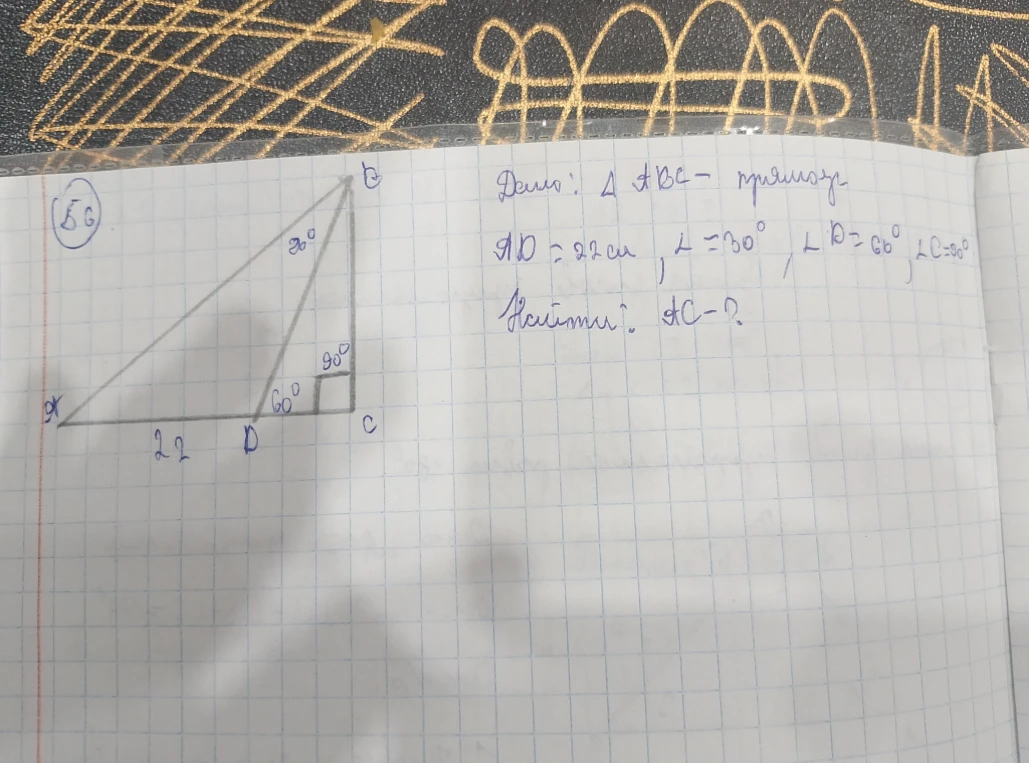 56
B
30°
90°
60°
A
22
D
C
Дано: Δ ABC - прямоуг
AD = 22 см, ∠ = 30°, ∠ D = 60°, ∠C=90°
Найти: AC - ?